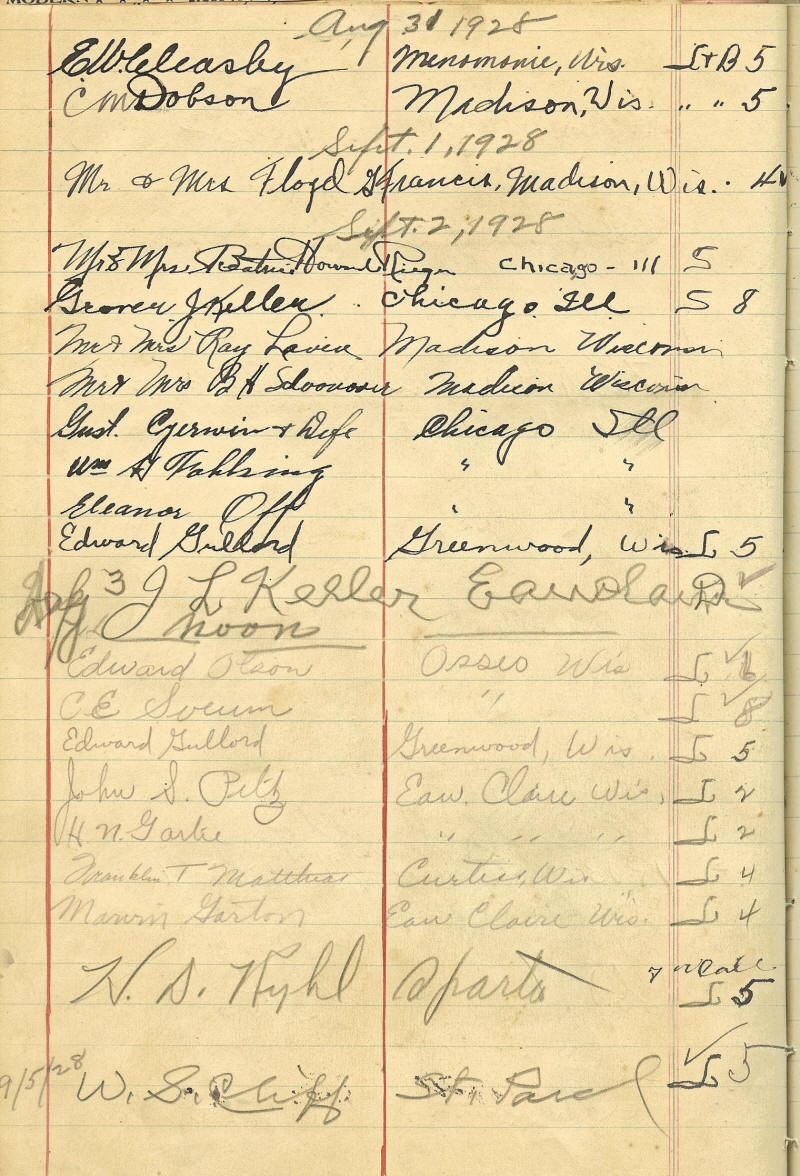 Aug 31 1928
E.W. Cleasby Menomonie, Wis. L+B 5
C M Dobson Madison, Wis. " " 5
Sept. 1, 1928
Mr & Mrs Floyd G Francis, Madison, Wis. 4
Sept. 2, 1928
Mr & Mrs. Howard Rieger Chicago - Ill 5
Grover J Keller. Chicago Ill 5 8
Mr & Mrs Ray Lavin Madison Wisconsin
Mr & Mrs B H Madison Wisconsin
Gust. Gerwin & Wife Chicago Ill
Wm H Fahlsing " "
Eleanor Off " "
Edward Gullord Greenwood, Wis. L 5
3 J L Keller Eau Claire
noon
Edward Olson Osseo Wis L 6
C E Sveum " L 8
Edward Gullord Greenwood, Wis. L 5
John S. Peltz Eau. Claire Wis. L 2
H N. Garlie " " " L 2
Franklin T Matthias Curtiss, Wis L 4
Marvin Garton Eau Claire Wis. L 4
H. S. Ryhl Sparta 7 Call
L 5
9/5/28 W. S. Cliff St. Paul L 5